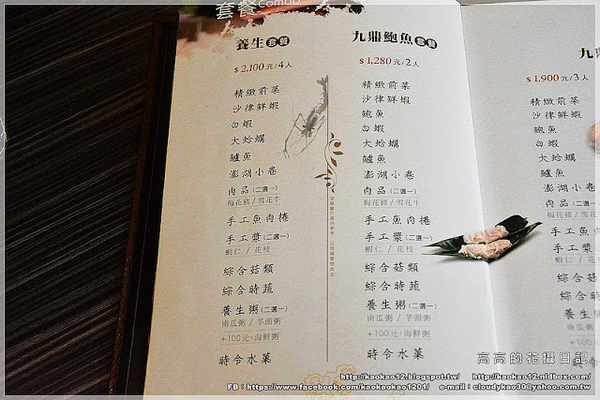 套餐Combo
養生套餐
$2,100元/4人
精緻前菜
沙律鮮蝦
白蝦
大蛤蠣
鱸魚
澎湖小卷
肉品(二選一)
梅花豬/雪花牛
手工魚肉捲
手工漿(二選一)
蝦仁/花枝
綜合菇類
綜合時蔬
養生粥(二選一)
南瓜粥/芋頭粥
+100元:海鮮粥
時令水菓
九鼎鮑魚套餐
$1,280元/2人
精緻前菜
沙律鮮蝦
鮑魚
白蝦
大蛤蠣
鱸魚
澎湖小卷
肉品(二選一)
梅花豬/雪花牛
手工魚肉捲
手工漿(二選一)
蝦仁/花枝
綜合菇類
綜合時蔬
養生粥(二選一)
南瓜粥/芋頭粥
+100元:海鮮粥
時令水菓
九
$1,900元/3人
精緻前菜
沙律鮮蝦
鮑魚
白蝦
大蛤蠣
鱸魚
澎湖小卷
肉品(二選一)
梅花豬/雪花牛
手工魚肉
手工漿(二
蝦仁/花枝
綜合菇
綜合時
養生粥
南瓜粥/
+100元:
時令
高高的花攝日記
http://kaokao12.blogspot.tw/ http://kaokao12.nidbox.com/
FB:https://www.facebook.com/kaokaokao1201/ e-mail:cloudykao30@yahoo.com.tw